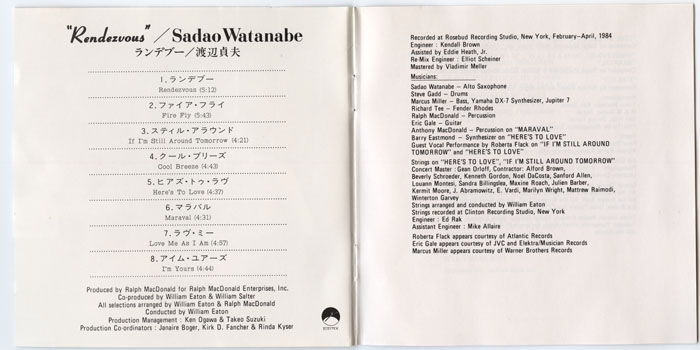 "Rendezvous" / Sadao Watanabe
ランデブー／渡辺貞夫
1. ランデブー
Rendezvous (5:12)
2. ファイア・フライ
Fire Fly (5:43)
3. スティル・アラウンド
If I'm Still Around Tomorrow (4:21)
4. クール・ブリーズ
Cool Breeze (4:43)
5. ヒアズ・トゥ・ラヴ
Here's To Love (4:37)
6. マラバル
Maraval (4:31)
7. ラヴ・ミー
Love Me As I Am (4:57)
8. アイム・ユアーズ
I'm Yours (4:44)
Produced by Ralph MacDonald for Ralph MacDonald Enterprises, Inc.
Co-produced by William Eaton & William Salter
All selections arranged by William Eaton & Ralph MacDonald
Conducted by William Eaton
Production Management : Ken Ogawa & Takao Suzuki
Production Co-ordinators : Janaire Boger, Kirk D. Fancher & Rinda Kyser
Recorded at Rosebud Recording Studio, New York, February–April, 1984
Engineer : Kendall Brown
Assisted by Eddie Heath, Jr.
Re-Mix Engineer : Elliot Scheiner
Mastered by Vladimir Meller
Musicians:
Sadao Watanabe – Alto Saxophone
Steve Gadd – Drums
Marcus Miller – Bass, Yamaha DX-7 Synthesizer, Jupiter 7
Richard Tee – Fender Rhodes
Ralph MacDonald – Percussion
Eric Gale – Guitar
Anthony MacDonald – Percussion on "MARAVAL"
Barry Eastmond – Synthesizer on "HERE'S TO LOVE"
Guest Vocal Performance by Roberta Flack on "IF I'M STILL AROUND
TOMORROW" and "HERE'S TO LOVE"
Strings on "HERE'S TO LOVE", "IF I'M STILL AROUND TOMORROW"
Concert Master : Gean Orloff, Contractor : Alford Brown,
Beverly Schroeder, Kenneth Gordon, Noel DaCosta, Sanford Allen,
Louann Montesi, Sandra Billingslea, Maxine Roach, Julien Barber,
Kermit Moore, J. Abramowitz, E. Vardi, Marilyn Wright, Matthew Raimodi,
Winterton Garvey
Strings arranged and conducted by William Eaton
Strings recorded at Clinton Recording Studio, New York
Engineer : Ed Rak
Assistant Engineer : Mike Allaire
Roberta Flack appears courtesy of Atlantic Records
Eric Gale appears courtesy of JVC and Elektra/Musician Records
Marcus Miller appears courtesy of Warner Brothers Records